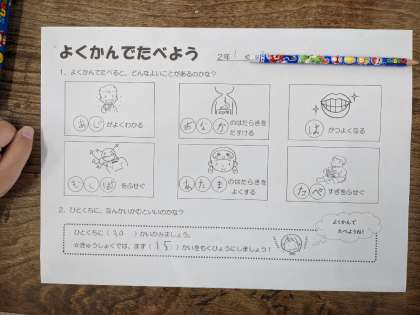 よくかんでたべよう
2年
1、よくかんでたべると、どんなよいことがあるのかな?
あじがよくわかる
おなかのはたらきを
たすける
はがつよくなる
むしばをふせぐ
あたまのはたらきを
よくする
たべすぎをふせぐ
2、ひとくちに、なんかいかむといいのかな?
よくかんで
たべようね!
ひとくちに(30)かいかみましょう。
☆きゅうしょくでは、まず(15)かいをもくひょうにしましょう!